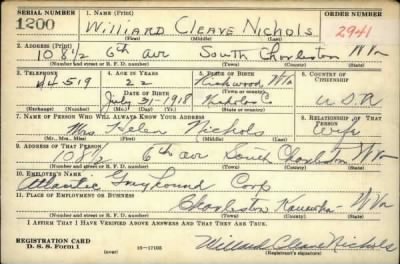 SERIAL NUMBER 1. NAME (Print) ORDER NUMBER
1200 Williard Cleave Nichols 2941
(First) (Middle) (Last)
2. ADDRESS (Print)
108½ 6th av South Charleston W Va
(Number and street or R. F. D. number) (Town) (County) (State)
3. TELEPHONE 4. AGE IN YEARS 5. PLACE OF BIRTH 6. COUNTRY OF CITIZENSHIP
44519 2 Wa
DATE OF BIRTH (Town or county)
July 31-1918 Nicholas Co U.S.A
(Exchange) (Number) (Mo.) (Day) (Yr.) (State or country)
7. NAME OF PERSON WHO WILL ALWAYS KNOW YOUR ADDRESS 8. RELATIONSHIP OF THAT PERSON
Mrs. Helen Nichols Wife
(Mr., Mrs., Miss) (First) (Middle) (Last)
9. ADDRESS OF THAT PERSON
108½ 6th av South Charleston W Va
(Number and street or R. F. D. number) (Town) (County) (State)
10. EMPLOYER'S NAME
Atlantic Greyhound Corp
11. PLACE OF EMPLOYMENT OR BUSINESS
Charleston Kanawha W Va
(Number and street or R. F. D. number) (Town) (County) (State)
I AFFIRM THAT I HAVE VERIFIED ABOVE ANSWERS AND THAT THEY ARE TRUE.
REGISTRATION CARD
D. S. S. Form 1 (over) 16-17105 Willard Cleave Nichols
(Registrant's signature)